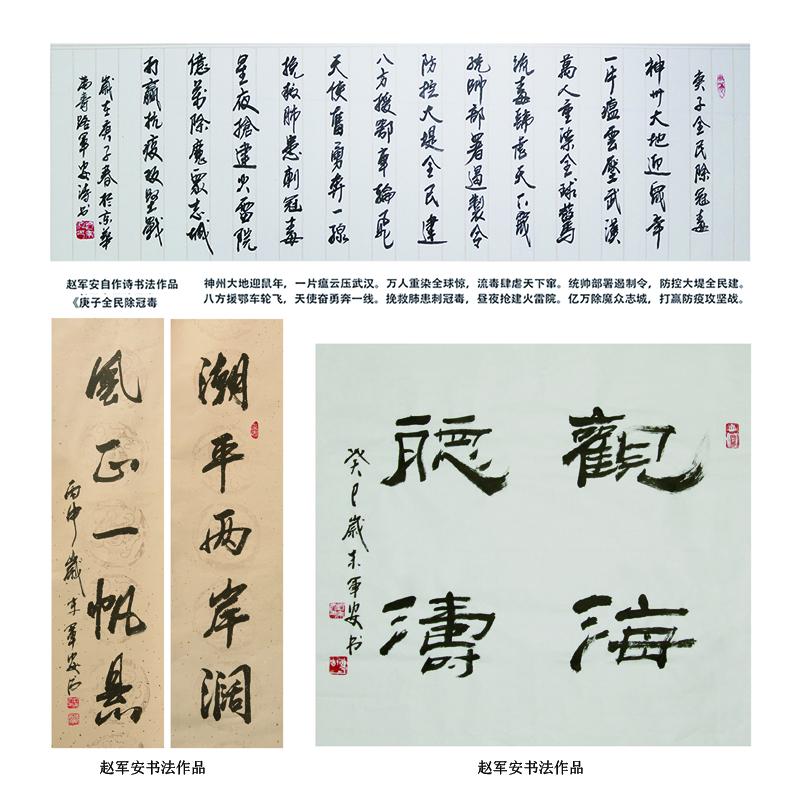 庚子全民除冠毒
神州大地迎鼠年
一片瘟雲壓武漢
萬人重染全球驚
流毒肆虐天下竄
統帥部署遏製令
防控大堤全民建
八方援鄂車輪飛
天使奮勇奔一線
挽救肺患刺冠毒
星夜搶建火雷院
億萬除魔眾志城
打贏抗疫攻堅戰
歲在庚子春於京華
萬壽路軍安诗书
赵军安自作诗书法作品
《庚子全民除冠毒
神州大地迎鼠年，一片瘟云压武汉。万人重染全球惊，流毒肆虐天下窜。统帅部署遏制令，防控大堤全民建。
八方援鄂车轮飞，天使奋勇奔一线。挽救肺患刺冠毒，昼夜抢建火雷院。亿万除魔众志城，打赢防疫攻坚战。
潮平兩岸闊
風正一帆懸
丙申歲末軍安书
觀海
聽濤
癸巳歲末軍安书
赵军安书法作品
赵军安书法作品